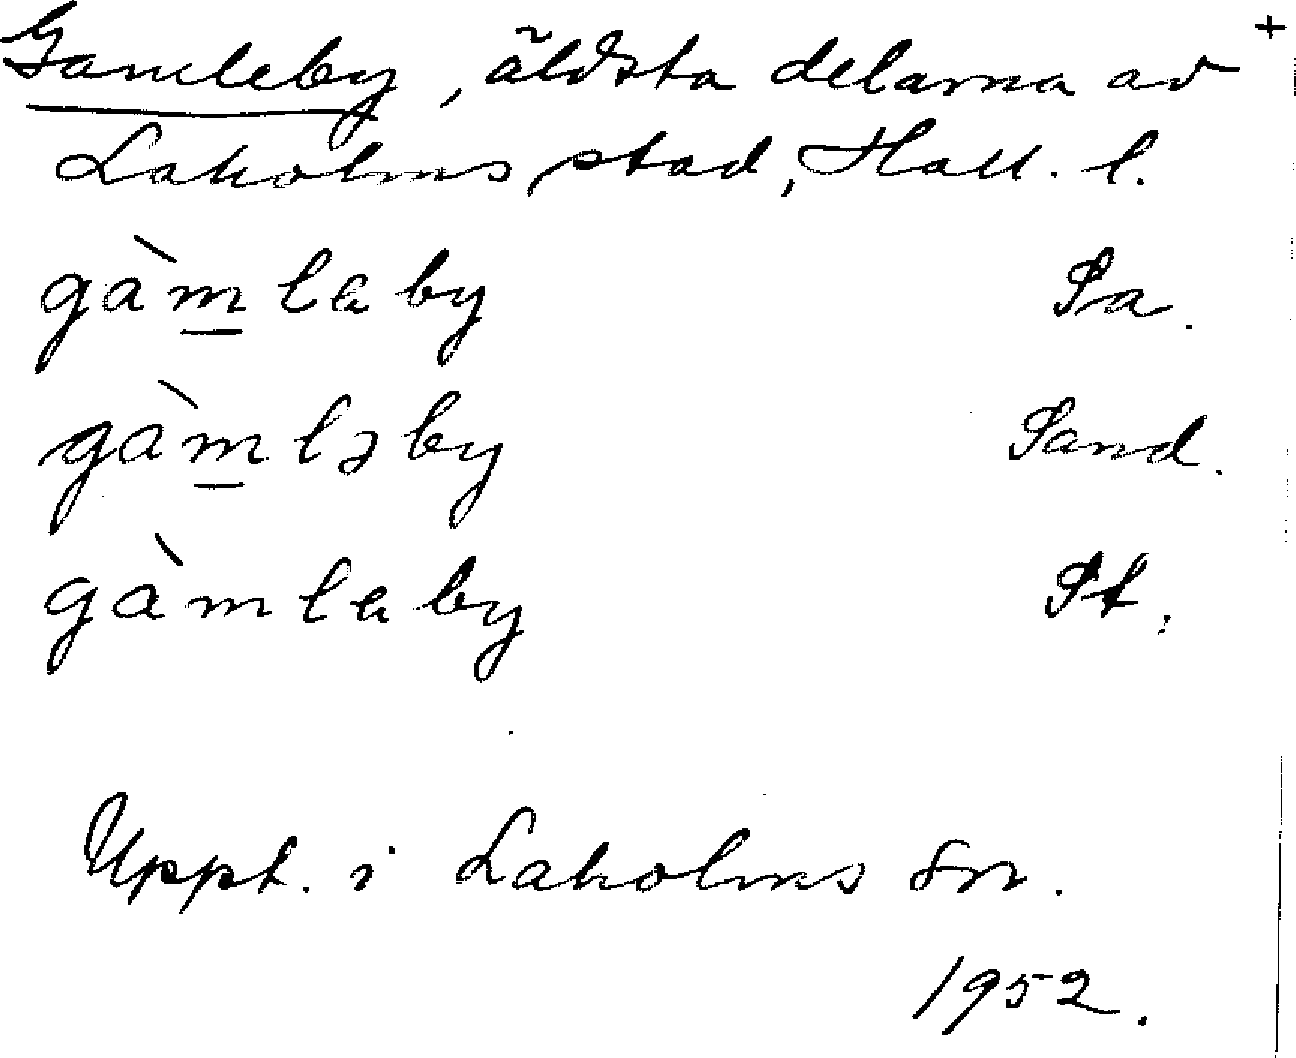 +
Gamleby, äldsta delarna av
Laholms stad, Hall. l.
gàmlaby Sa.
gàmləby Sand.
gàmlaby St.
Uppt. i Laholms sn.
1952.